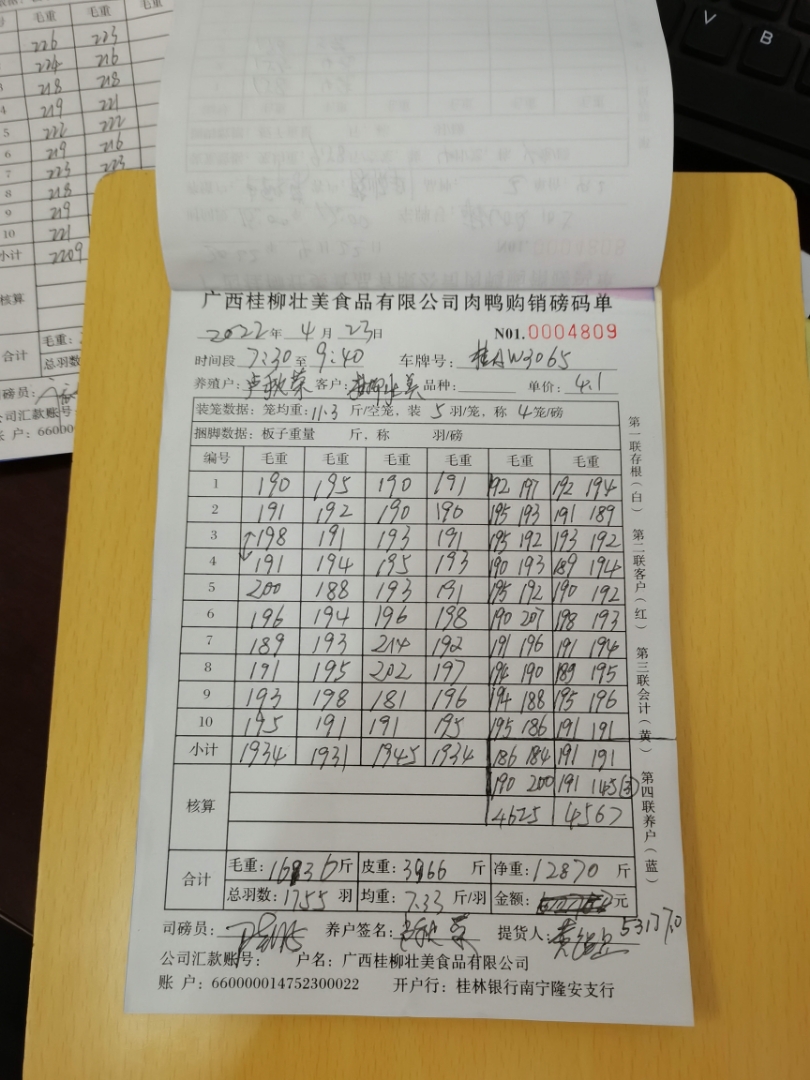 毛重 毛重
226 223
224 216
3 218 218
4 219 221
5 222 222
6 219 216
7 223 223
8 218
9 219
10 221
小计 2209
核算
合计 毛重:
总羽数:
磅员:
公司汇款账号
账 户: 66000
V B
广西桂柳壮美食品有限公司肉鸭购销磅码单
2022年 4月 23日 N01.0004809
时间段 7:30 至 9:40 车牌号: 桂AW3065
养殖户: 卢秋荣 客户: 桂柳壮美 品种: 单价: 4.1
装笼数据: 笼均重: 11.3 斤/空笼, 装 5 羽/笼, 称 4 笼/磅
捆脚数据: 板子重量 斤, 称 羽/磅
编号 毛重 毛重 毛重 毛重 毛重 毛重
1 190 195 190 191 192 197 192 194
2 191 192 190 190 195 193 191 189
3 198 191 193 191 195 192 193 192
4 191 194 195 193 190 193 189 194
5 200 188 193 191 195 192 190 192
6 196 194 196 198 190 207 198 193
7 189 193 214 192 191 196 191 194
8 191 195 202 197 194 190 189 195
9 193 198 181 196 194 188 195 196
10 195 191 191 195 195 186 191 191
小计 1934 1931 1945 1934 186 184 191 191
190 200 191 145(3)
核算 4625 4567
合计 毛重: 16836 斤 皮重: 3966 斤 净重: 12870 斤
总羽数: 1755 羽 均重: 7.33 斤/羽 金额: 元
53177.0
司磅员: 养户签名: 卢秋荣 提货人:
公司汇款账号: 户名: 广西桂柳壮美食品有限公司
账 户: 660000014752300022 开户行: 桂林银行南宁隆安支行
第一联存根(白) 第二联客户(红) 第三联会计(黄) 第四联养户(蓝)